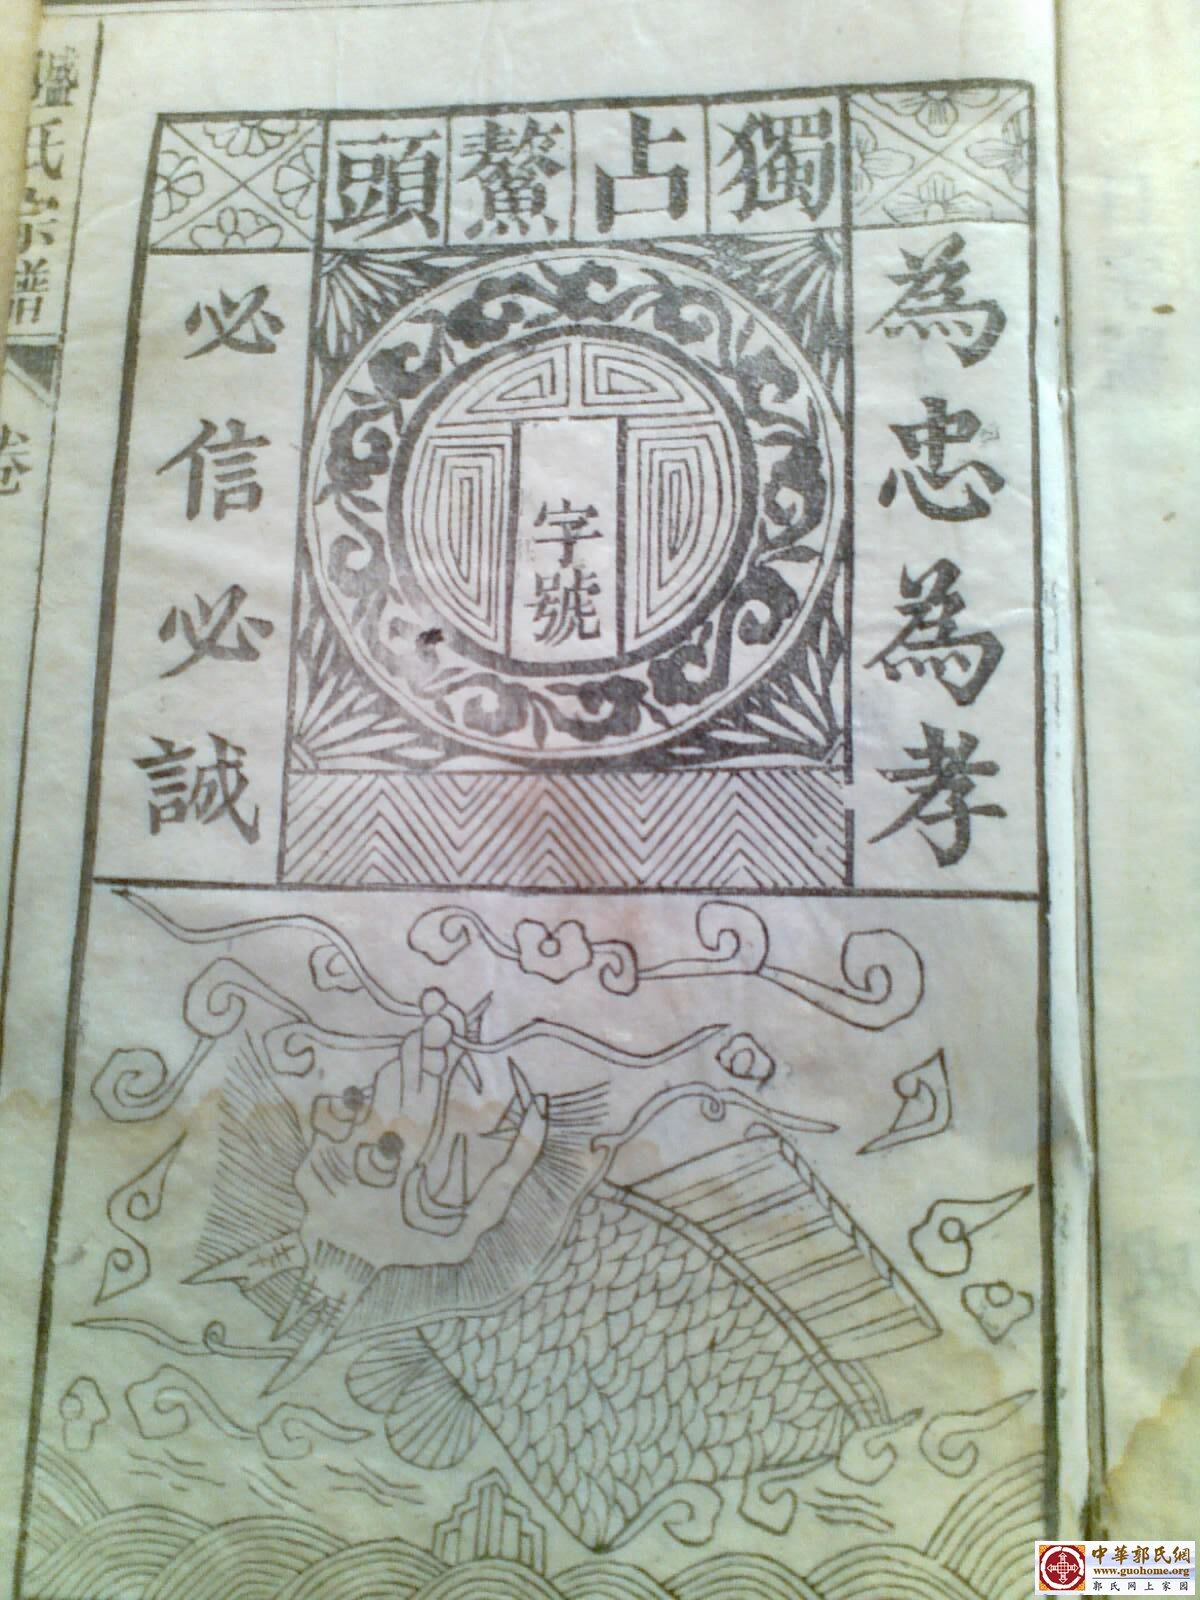 獨占鰲頭
為忠為孝
字號
必信必誠
氏宗譜
卷
中華郭氏網
www.guohome.org
郭氏网上家园